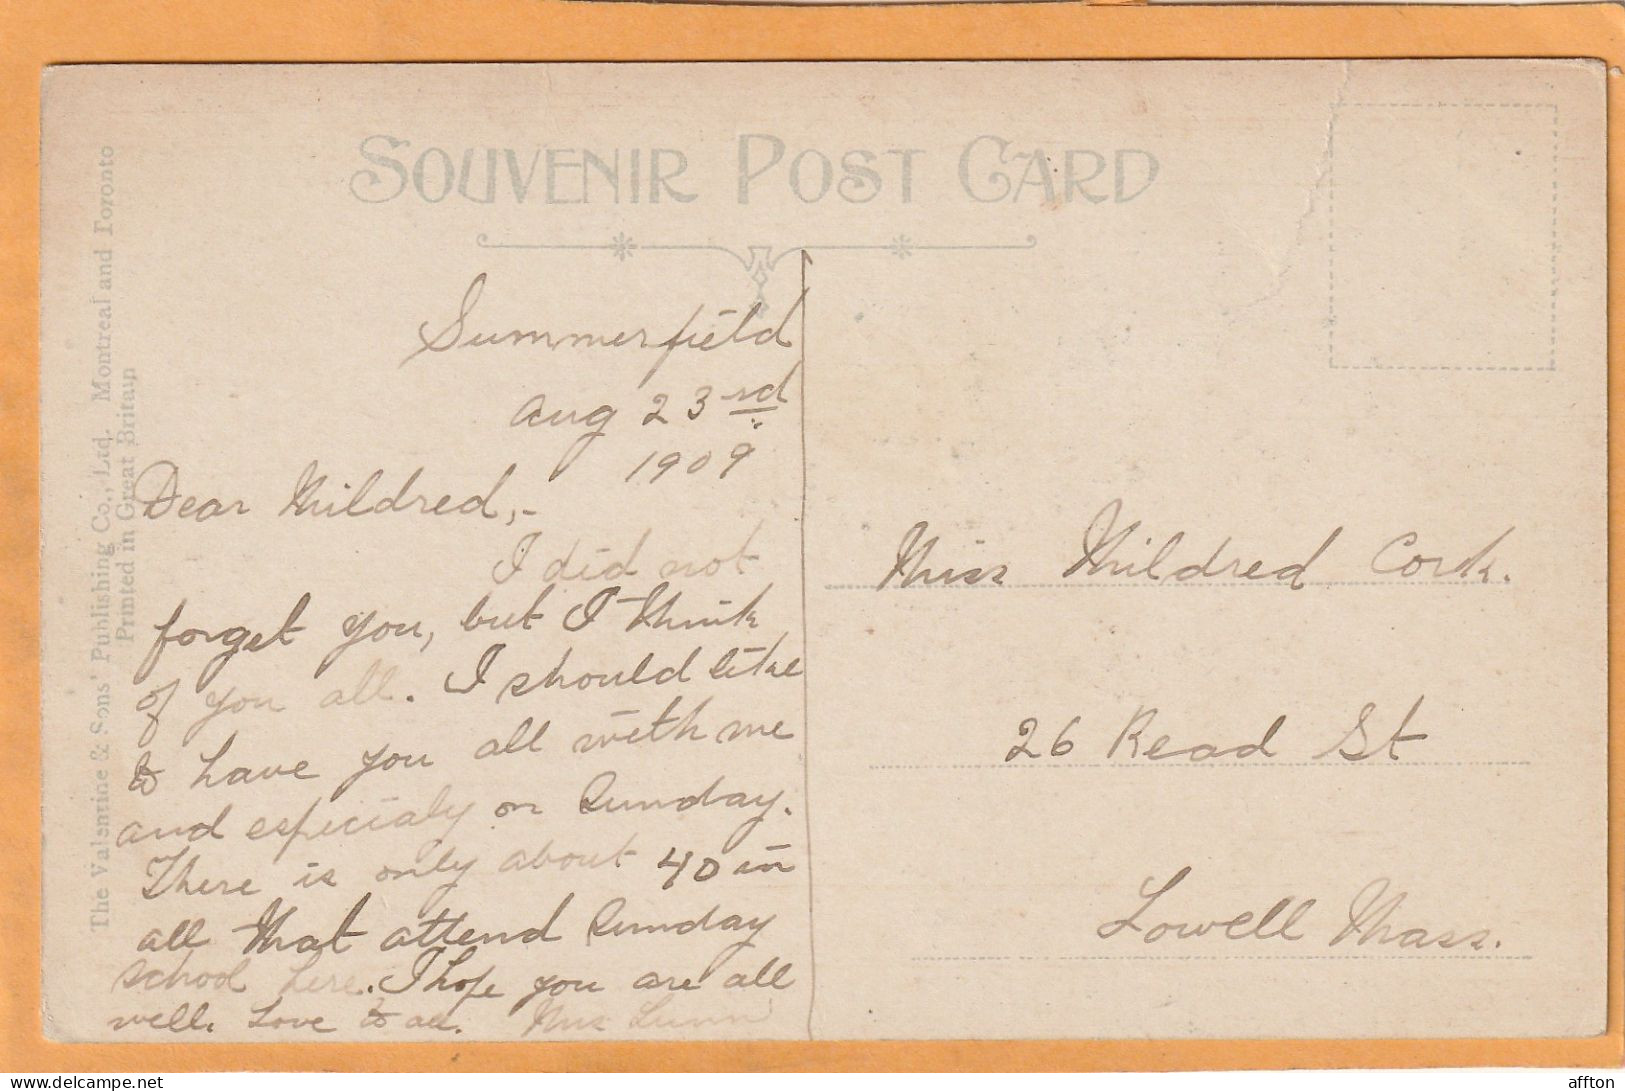 SOUVENIR POST CARD
The Valentine & Sons' Publishing Co., Ltd. Montreal and Toronto
Printed in Great Britain
Summerfield
Aug 23rd
1909
Dear Mildred,-
I did not
forget you, but I think
of you all. I should like
to have you all with me
and especialy on Sunday.
There is only about 40 in
all that attend Sunday
school here. I hope you are all
well. Love to all. Miss Lunn
Miss Mildred Cork.
26 Read St
Lowell Mass.
delcampe.net
affton